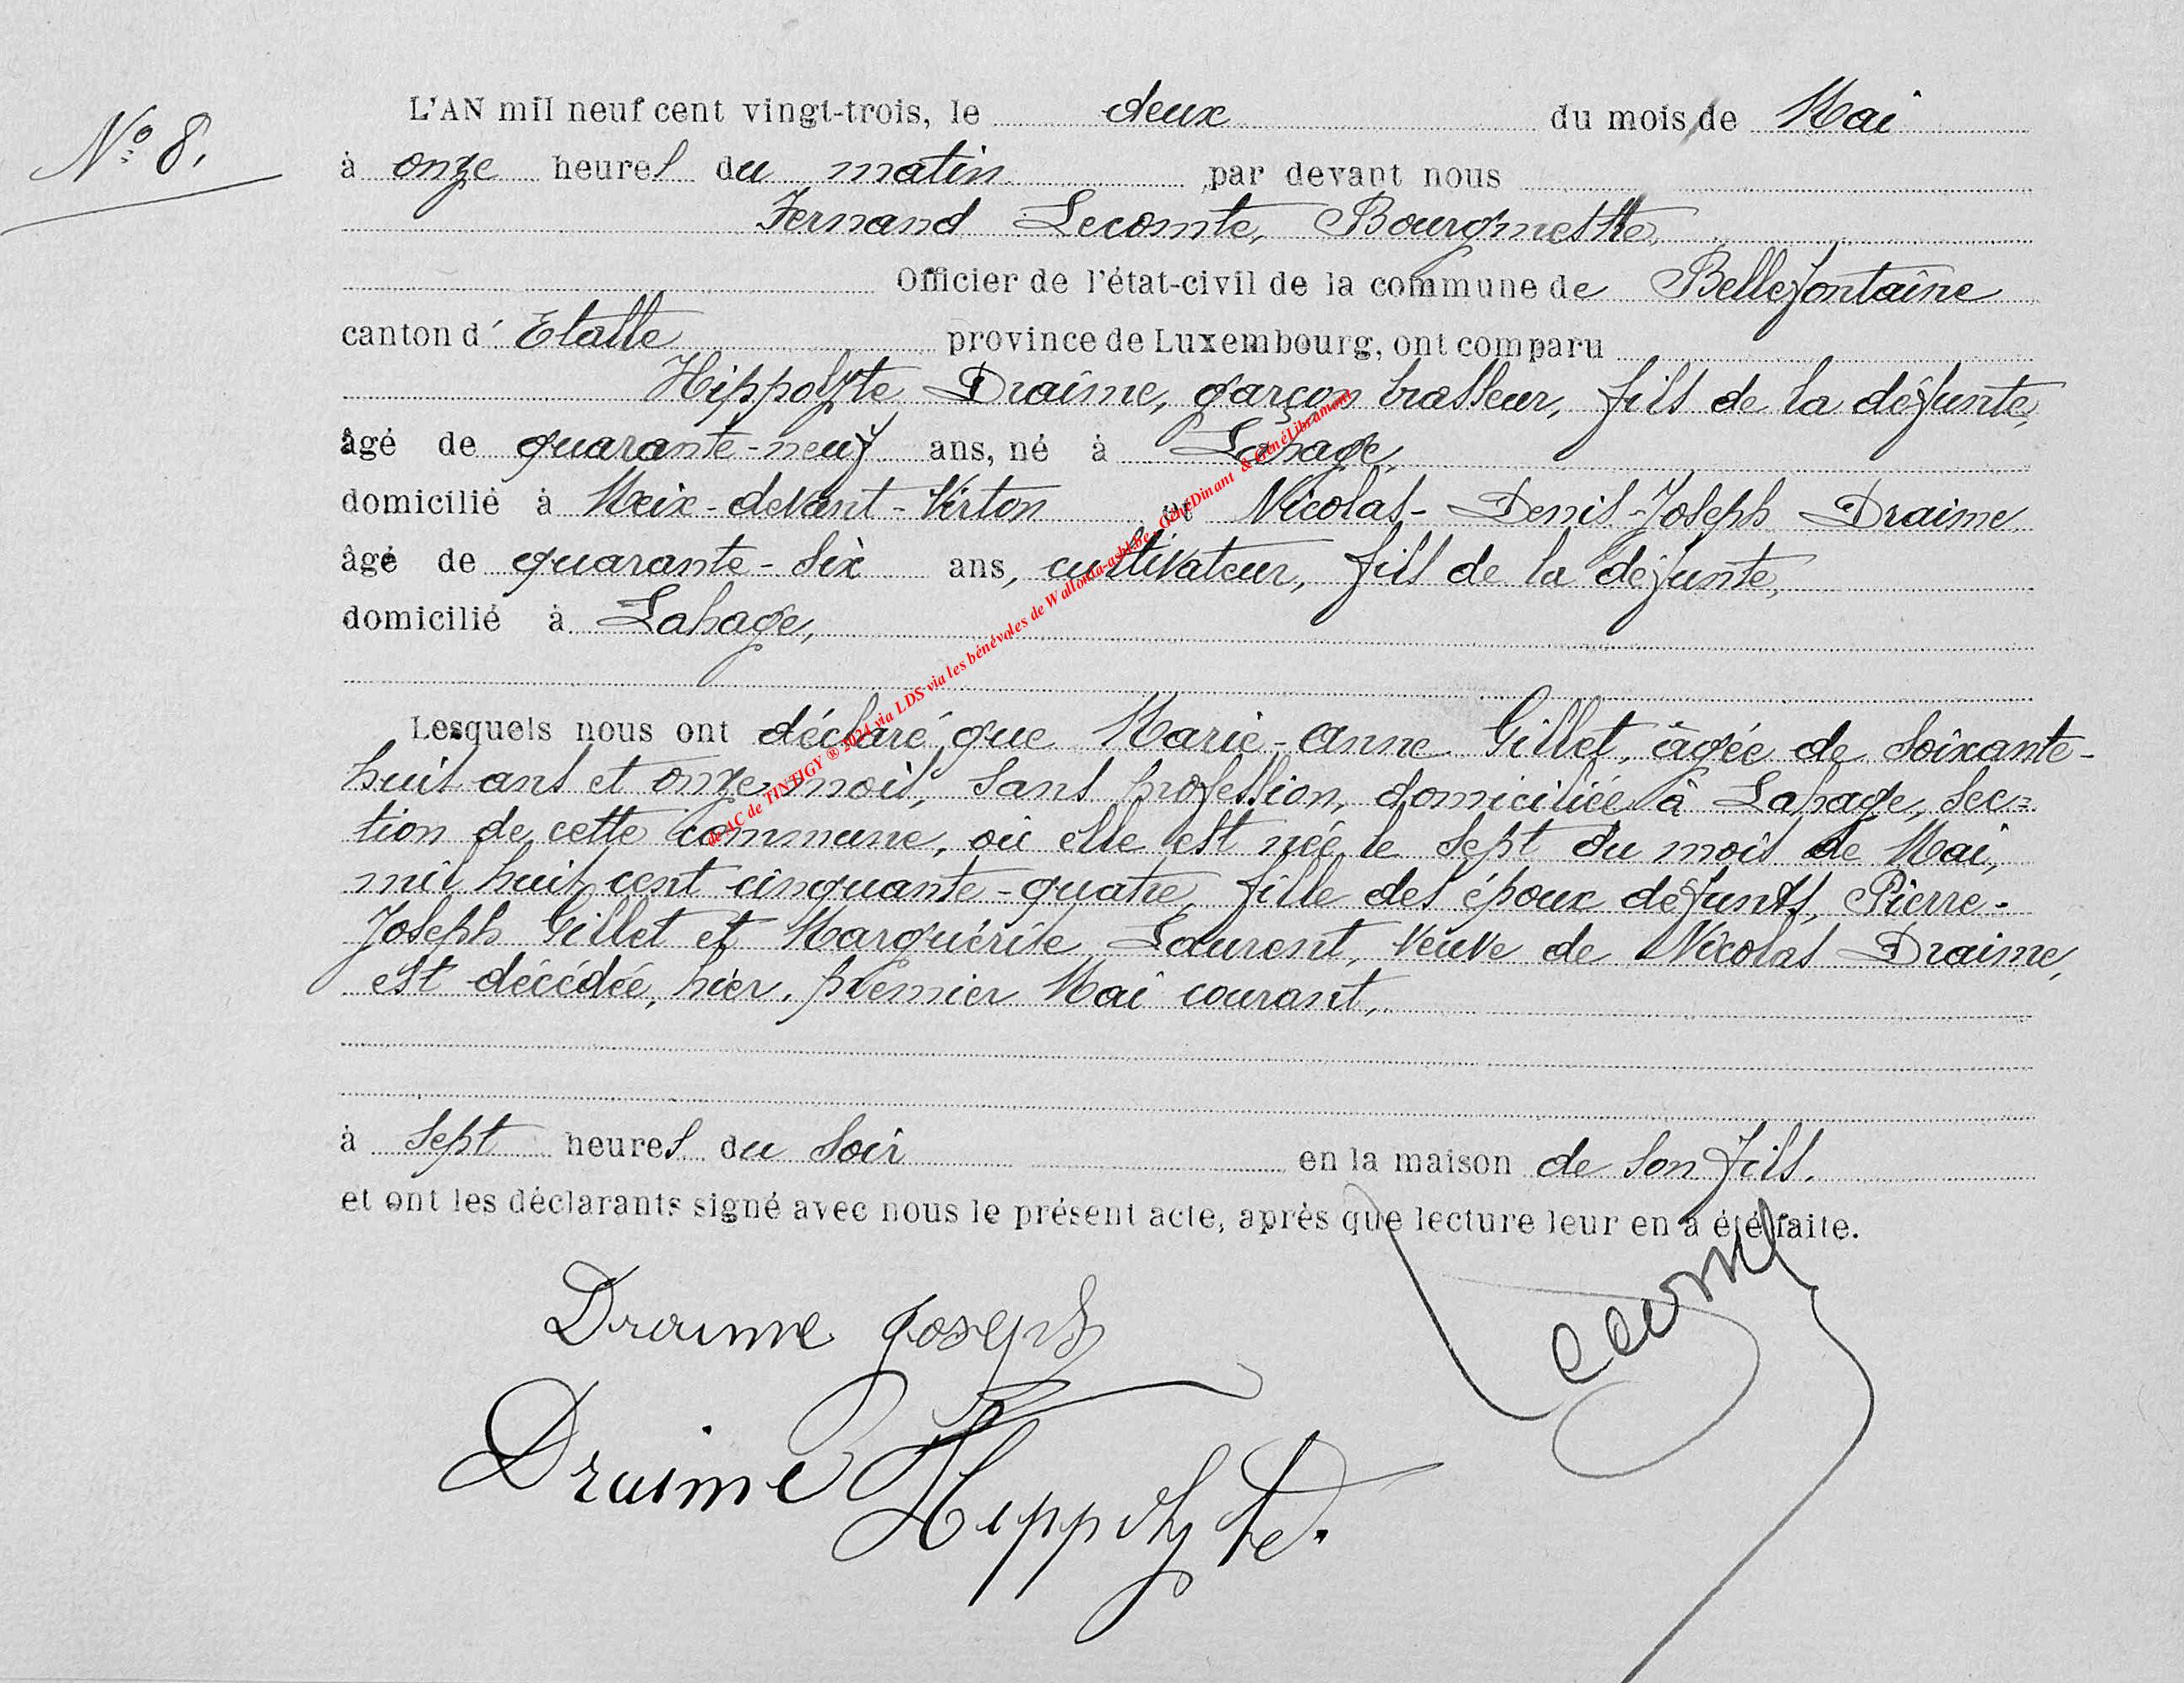 N° 8.
L'AN mil neuf cent vingt-trois, le deux du mois de Mai
à onze heures du matin par devant nous
Fernand Lecomte, Bourgmestre,
Officier de l'état-civil de la commune de Bellefontaine
canton d' Etalle province de Luxembourg, ont comparu
Hippolyte Draime, garçon brasseur, fils de la défunte,
âgé de quarante-neuf ans, né à Lahage,
domicilié à Meix-devant-Virton et Nicolas-Denis-Joseph Draime
âgé de quarante-six ans, cultivateur, fils de la défunte,
domicilié à Lahage,
Lesquels nous ont déclaré que Marie-Anne Gillet, âgée de soixante-
huit ans et onze mois, sans profession, domiciliée à Lahage, sec=
tion de cette commune, où elle est née le sept du mois de Mai,
mil huit cent cinquante-quatre, fille des époux défunts, Pierre-
Joseph Gillet et Marguérite Laurent, veuve de Nicolas Draime,
est décédée, hier, premier Mai courant,
à sept heures du soir en la maison de son fils.
et ont les déclarants signé avec nous le présent acte, après que lecture leur en a été faite.
Draime Joseph
Lecomte
Draime Hippolyte.
de AC de TINTIGY ® 2024 via LDS via les bénévoles de Wallonia-asbl.be - GénéDinant & GénéLibramont